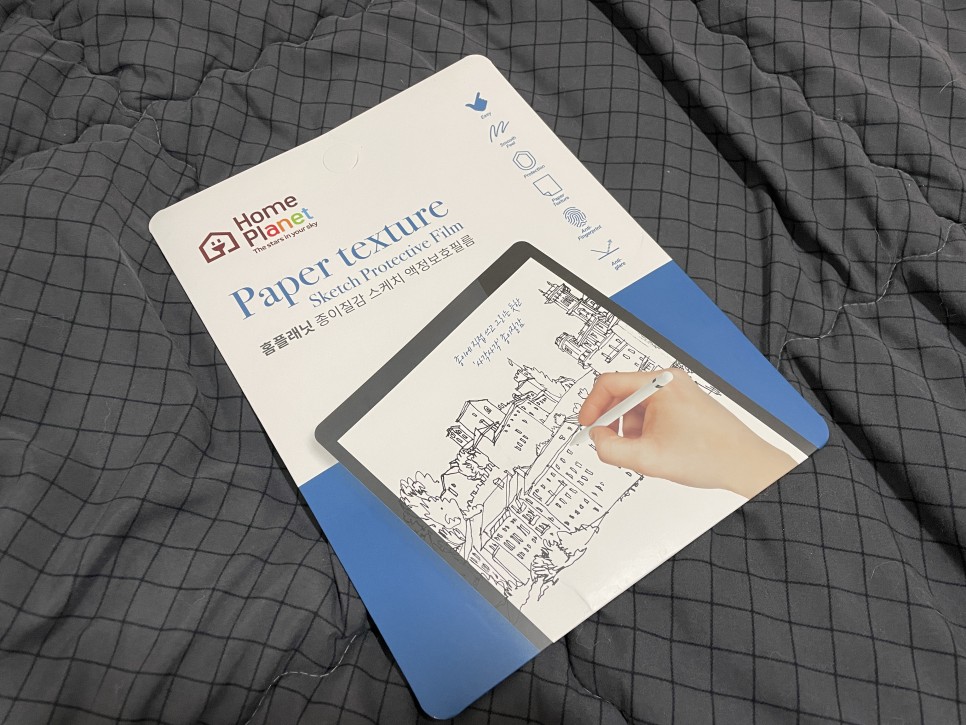 Home
Planet
The stars in your sky
Paper texture
Sketch Protective Film
홈플래닛 종이질감 스케치 액정보호필름
Easy
Smooth
Feel
Protection
Paper
Texture
Anti-
Fingerprint
Anti-
glare
종이에 직접 쓰고 그리는 듯한
'사각사각' 종이질감